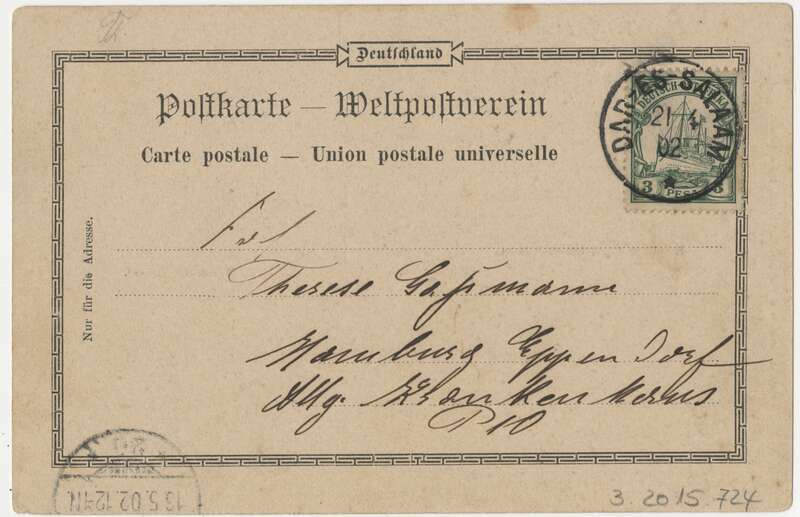 Deutschland
Postkarte — Weltpostverein
Carte postale — Union postale universelle
DAR-ES-SALAAM
21 4
02
DEUTSCH-
3 PESA 3
Nur für die Adresse.
Frl
Therese Gaßmann
Hamburg Eppendorf
Allg. Krankenhaus
P 10
13.5.02.12-1N.
3.2015.724